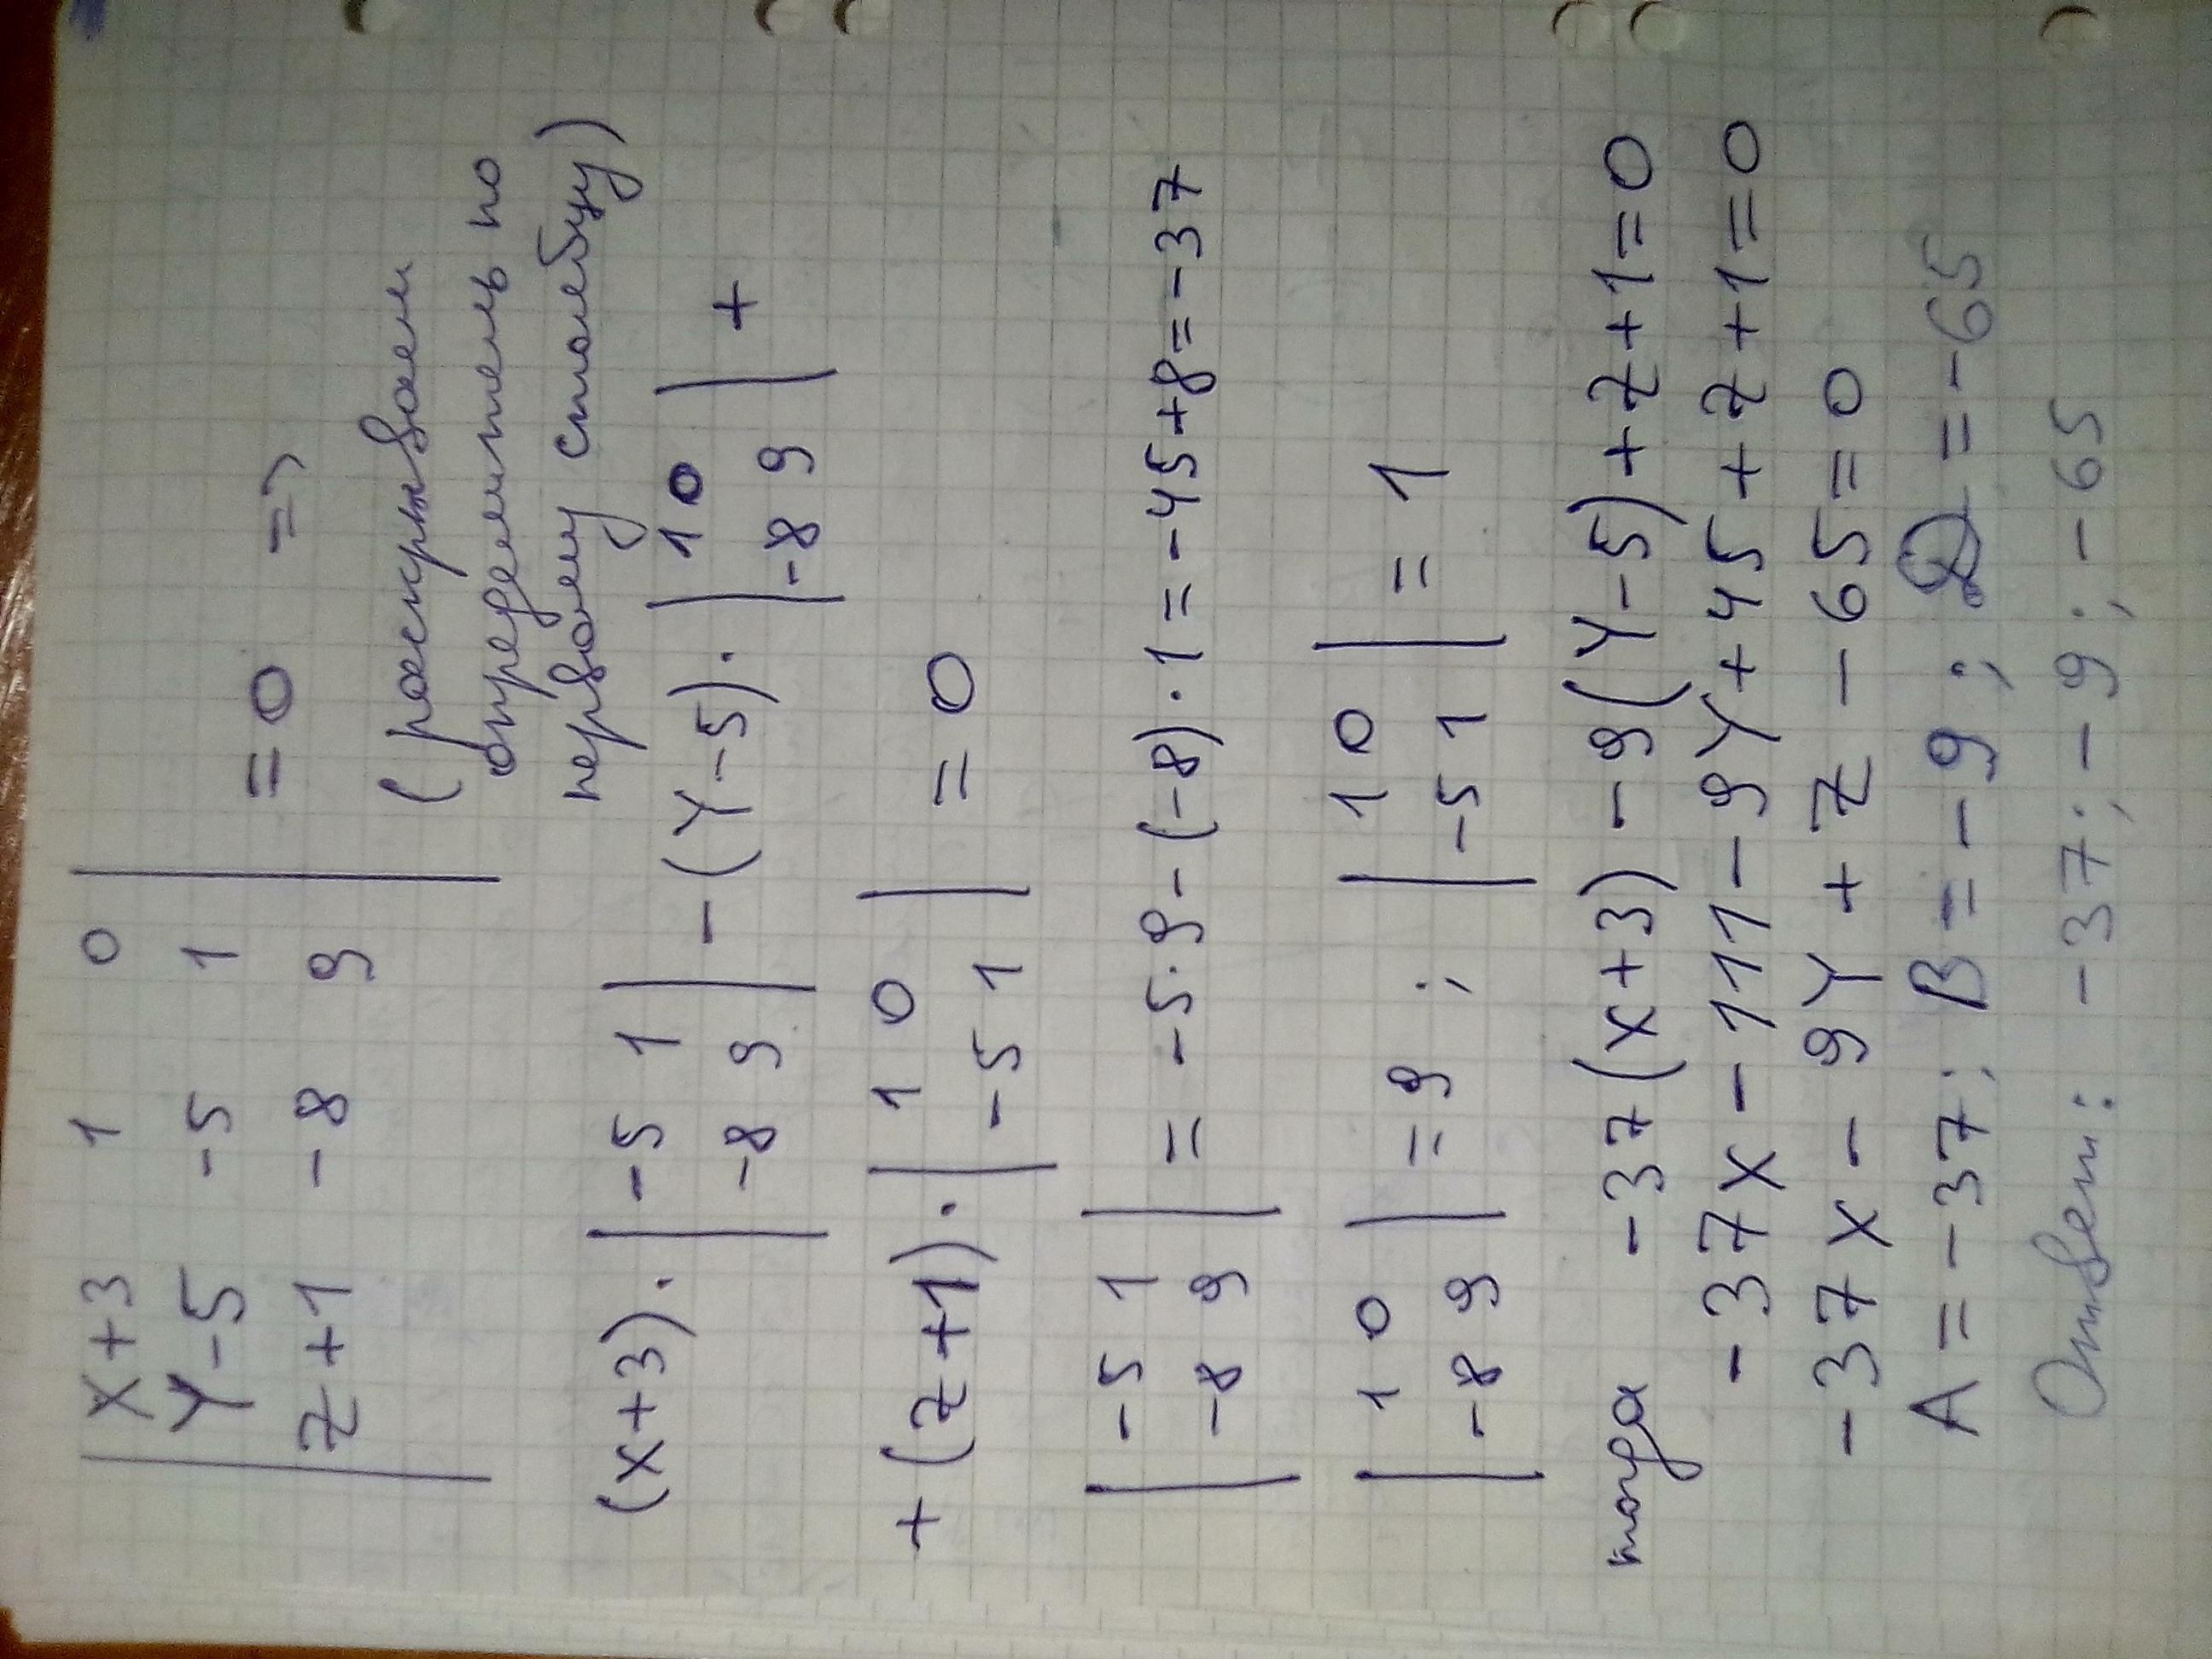 | X+3 1 0 |
| Y-5 -5 1 | =0 =>
| Z+1 -8 9 |
(раскрываем
определитель по
первому столбцу)
(x+3)·| -5 1 | -(Y-5)·| 1 0 | +
| -8 9 | | -8 9 |
+(z+1)·| 1 0 | =0
| -5 1 |
| -5 1 | = -5·9-(-8)·1=-45+8=-37
| -8 9 |
| 1 0 | =9 ; | 1 0 | =1
| -8 9 | | -5 1 |
тогда -37(x+3)-9(Y-5)+z+1=0
-37x-111-9Y+45+z+1=0
-37x-9Y+z-65=0
A=-37; B=-9; D=-65
Ответ: -37; -9; -65